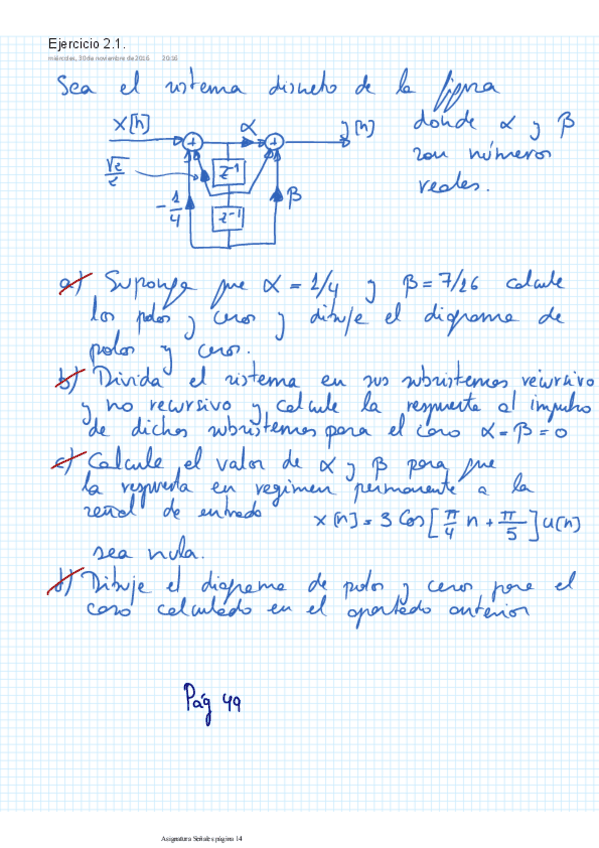 Ejercicio 2.1.
miércoles, 30 de noviembre de 2016 20:16
Sea el sistema discreto de la figura
x[n] α y[n] donde α y β
+ + son números
√2/2 z⁻¹ reales.
-1/4 z⁻¹ β
a) Suponga que α = 1/4 y β = 7/16 calcule
los polos y ceros y dibuje el diagrama de
polos y ceros.
b) Divida el sistema en sus subsistemas recursivo
y no recursivo y calcule la respuesta al impulso
de dichos subsistemas para el caso α = β = 0
c) Calcule el valor de α y β para que
la respuesta en regimen permanente a la
señal de entrada x[n] = 3 Cos[π/4 n + π/5]u[n]
sea nula.
d) Dibuje el diagrama de polos y ceros para el
caso calculado en el apartado anterior
Pág 49
Asignatura Señales página 14